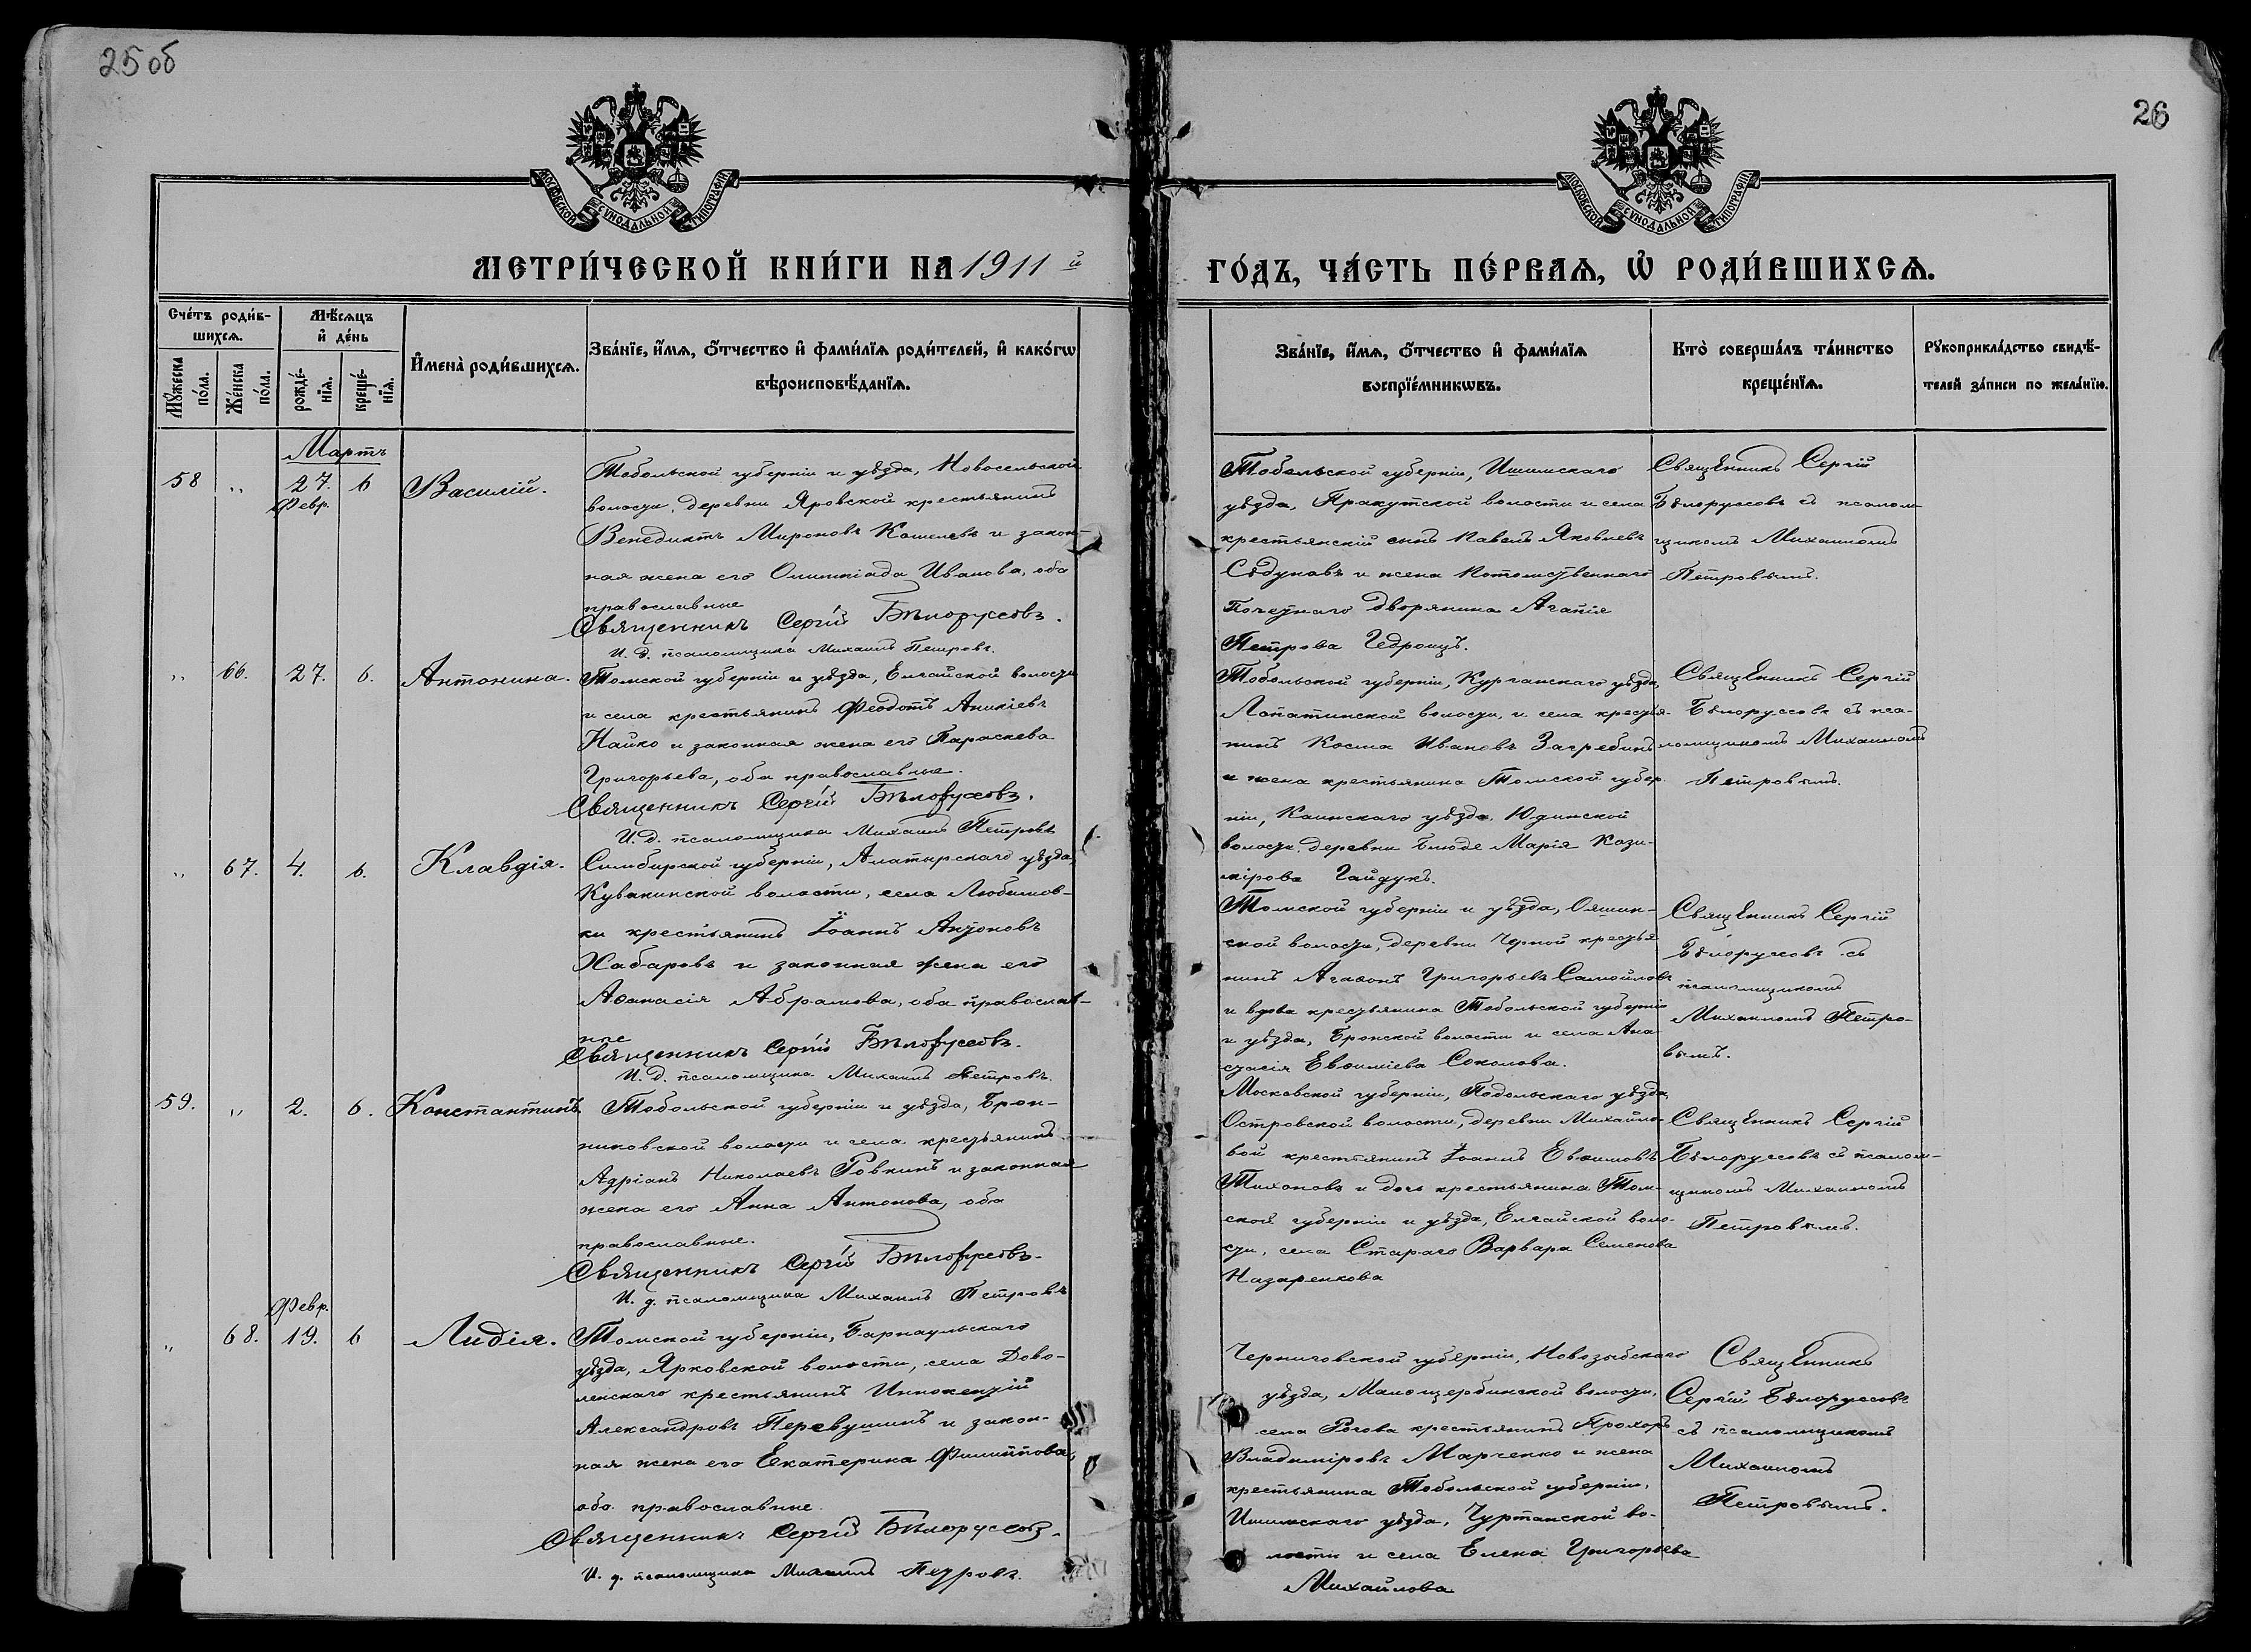 25 об
26
МОСКОВСКОЙ СУНОДАЛЬНОЙ ТИПОГРАФІИ
МОСКОВСКОЙ СУНОДАЛЬНОЙ ТИПОГРАФІИ
МЕТРИ́ЧЕСКОЙ КНИ́ГИ НА 1911 й
ГО́ДЪ, ЧА́СТЬ ПЕ́РВАѦ, Ѡ҆ РОДИ́ВШИХСѦ.
Сче́тъ роди́в-
шихсѧ.
Мꙋжеска по́ла.
Же́нска по́ла.
Мѣ́сѧцъ
и҆ де́нь
рожде́-
нїѧ.
креще́-
нїѧ.
И҆мена̀ роди́вшихсѧ.
Зва́нїе, и҆́мѧ, ѻ҆́тчество и҆ фами́лїѧ роди́телей, и҆ како́гѡ
вѣроисповѣ́данїѧ.
Зва́нїе, и҆́мѧ, ѻ҆́тчество и҆ фами́лїѧ
воспрїе́мникѡвъ.
Кто̀ соверша́лъ та́инство
креще́нїѧ.
Рꙋкоприкла́дство свидѣ́-
телей за́писи по жела́нїю.
Мартъ
58 " 27. Февр. 6 Василій.
Тобольской губерніи и уѣзда, Новосельской
волости, деревни Яровской крестьянинъ
Венедиктъ Мироновъ Кошелевъ и закон-
ная жена его Олимпіада Иванова, оба
православные
Священникъ Сергій Бѣлоруссовъ.
И. д. псаломщика Михаилъ Петровъ.
Тобольской губерніи, Ишимскаго
уѣзда, волости и села
крестьянскій сынъ Павелъ Яковлевъ
Сѣдуновъ и жена Потомственнаго
Почетнаго дворянина Агапія
Петрова Гедроицъ.
Священникъ Сергій
Бѣлоруссовъ съ псалом-
щикомъ Михаиломъ
Петровымъ.
" 66. 27. 6. Антонина.
Томской губерніи и уѣзда, Елгайской волости
и села крестьянинъ Феодотъ Аникіевъ
Найко и законная жена его Параскева
Григорьева, оба православные.
Священникъ Сергій Бѣлоруссовъ.
И. д. псаломщика Михаилъ Петровъ
Тобольской губерніи, Курганскаго уѣзда,
Лопатинской волости, и села крестья-
нинъ Косма Ивановъ Загребинъ
и жена крестьянина Томской губер-
ніи, Каинскаго уѣзда, Юдинской
волости, деревни Блюде Марія Кази-
мірова Гайдукъ.
Священникъ Сергій
Бѣлоруссовъ съ пса-
ломщикомъ Михаиломъ
Петровымъ.
" 67. 4. 6. Клавдія.
Симбирской губерніи, Алатырскаго уѣзда,
Кувакинской волости, села Любимов-
ки крестьянинъ Іоаннъ Антоновъ
Хабаровъ и законная жена его
Аѳанасія Абрамова, оба православ-
ные
Священникъ Сергій Бѣлоруссовъ.
И. д. псаломщика Михаилъ Петровъ.
Томской губерніи и уѣзда, Ояшин-
ской волости, деревни Черной крестья-
нинъ Агаѳонъ Григорьевъ Самойловъ
и вдова крестьянина Тобольской губерніи
и уѣзда, Бронской волости и села Ана-
стасія Евѳиміева Соколова.
Священникъ Сергій
Бѣлоруссовъ съ
псаломщикомъ
Михаиломъ Петро-
вымъ.
59. " 2. 6. Константинъ
Тобольской губерніи и уѣзда, Брон-
никовской волости и села крестьянинъ
Адріанъ Николаевъ Ровкинъ и законная
жена его Анна Антонова, оба
православные.
Священникъ Сергій Бѣлоруссовъ.
И. д. псаломщика Михаилъ Петровъ
Московской губерніи, Подольскаго уѣзда,
Островской волости, деревни Михайло-
вой крестьянинъ Іоаннъ Евѳимовъ
Тихоновъ и дочь крестьянина Том-
ской губерніи и уѣзда, Елгайской воло-
сти, села Стараго Варвара Семенова
Назаренкова
Священникъ Сергій
Бѣлоруссовъ съ псалом-
щикомъ Михаиломъ
Петровымъ.
" 68. Февр. 19. 6 Лидія.
Томской губерніи, Барнаульскаго
уѣзда, Ярковской волости, села Дово-
ленскаго крестьянинъ Иннокентій
Александровъ Первушинъ и закон-
ная жена его Екатерина Филиппова,
оба православные.
Священникъ Сергій Бѣлоруссовъ.
И. д. псаломщика Михаилъ Петровъ.
Черниговской губерніи, Новозыбскаго
уѣзда, Малощербинской волости,
села Рогова крестьянинъ Прохоръ
Владиміровъ Марченко и жена
крестьянина Тобольской губерніи,
Ишимскаго уѣзда, Чуртанской во-
лости и села Елена Григорьева
Михайлова
Священникъ
Сергій Бѣлоруссовъ
съ псаломщикомъ
Михаиломъ
Петровымъ.